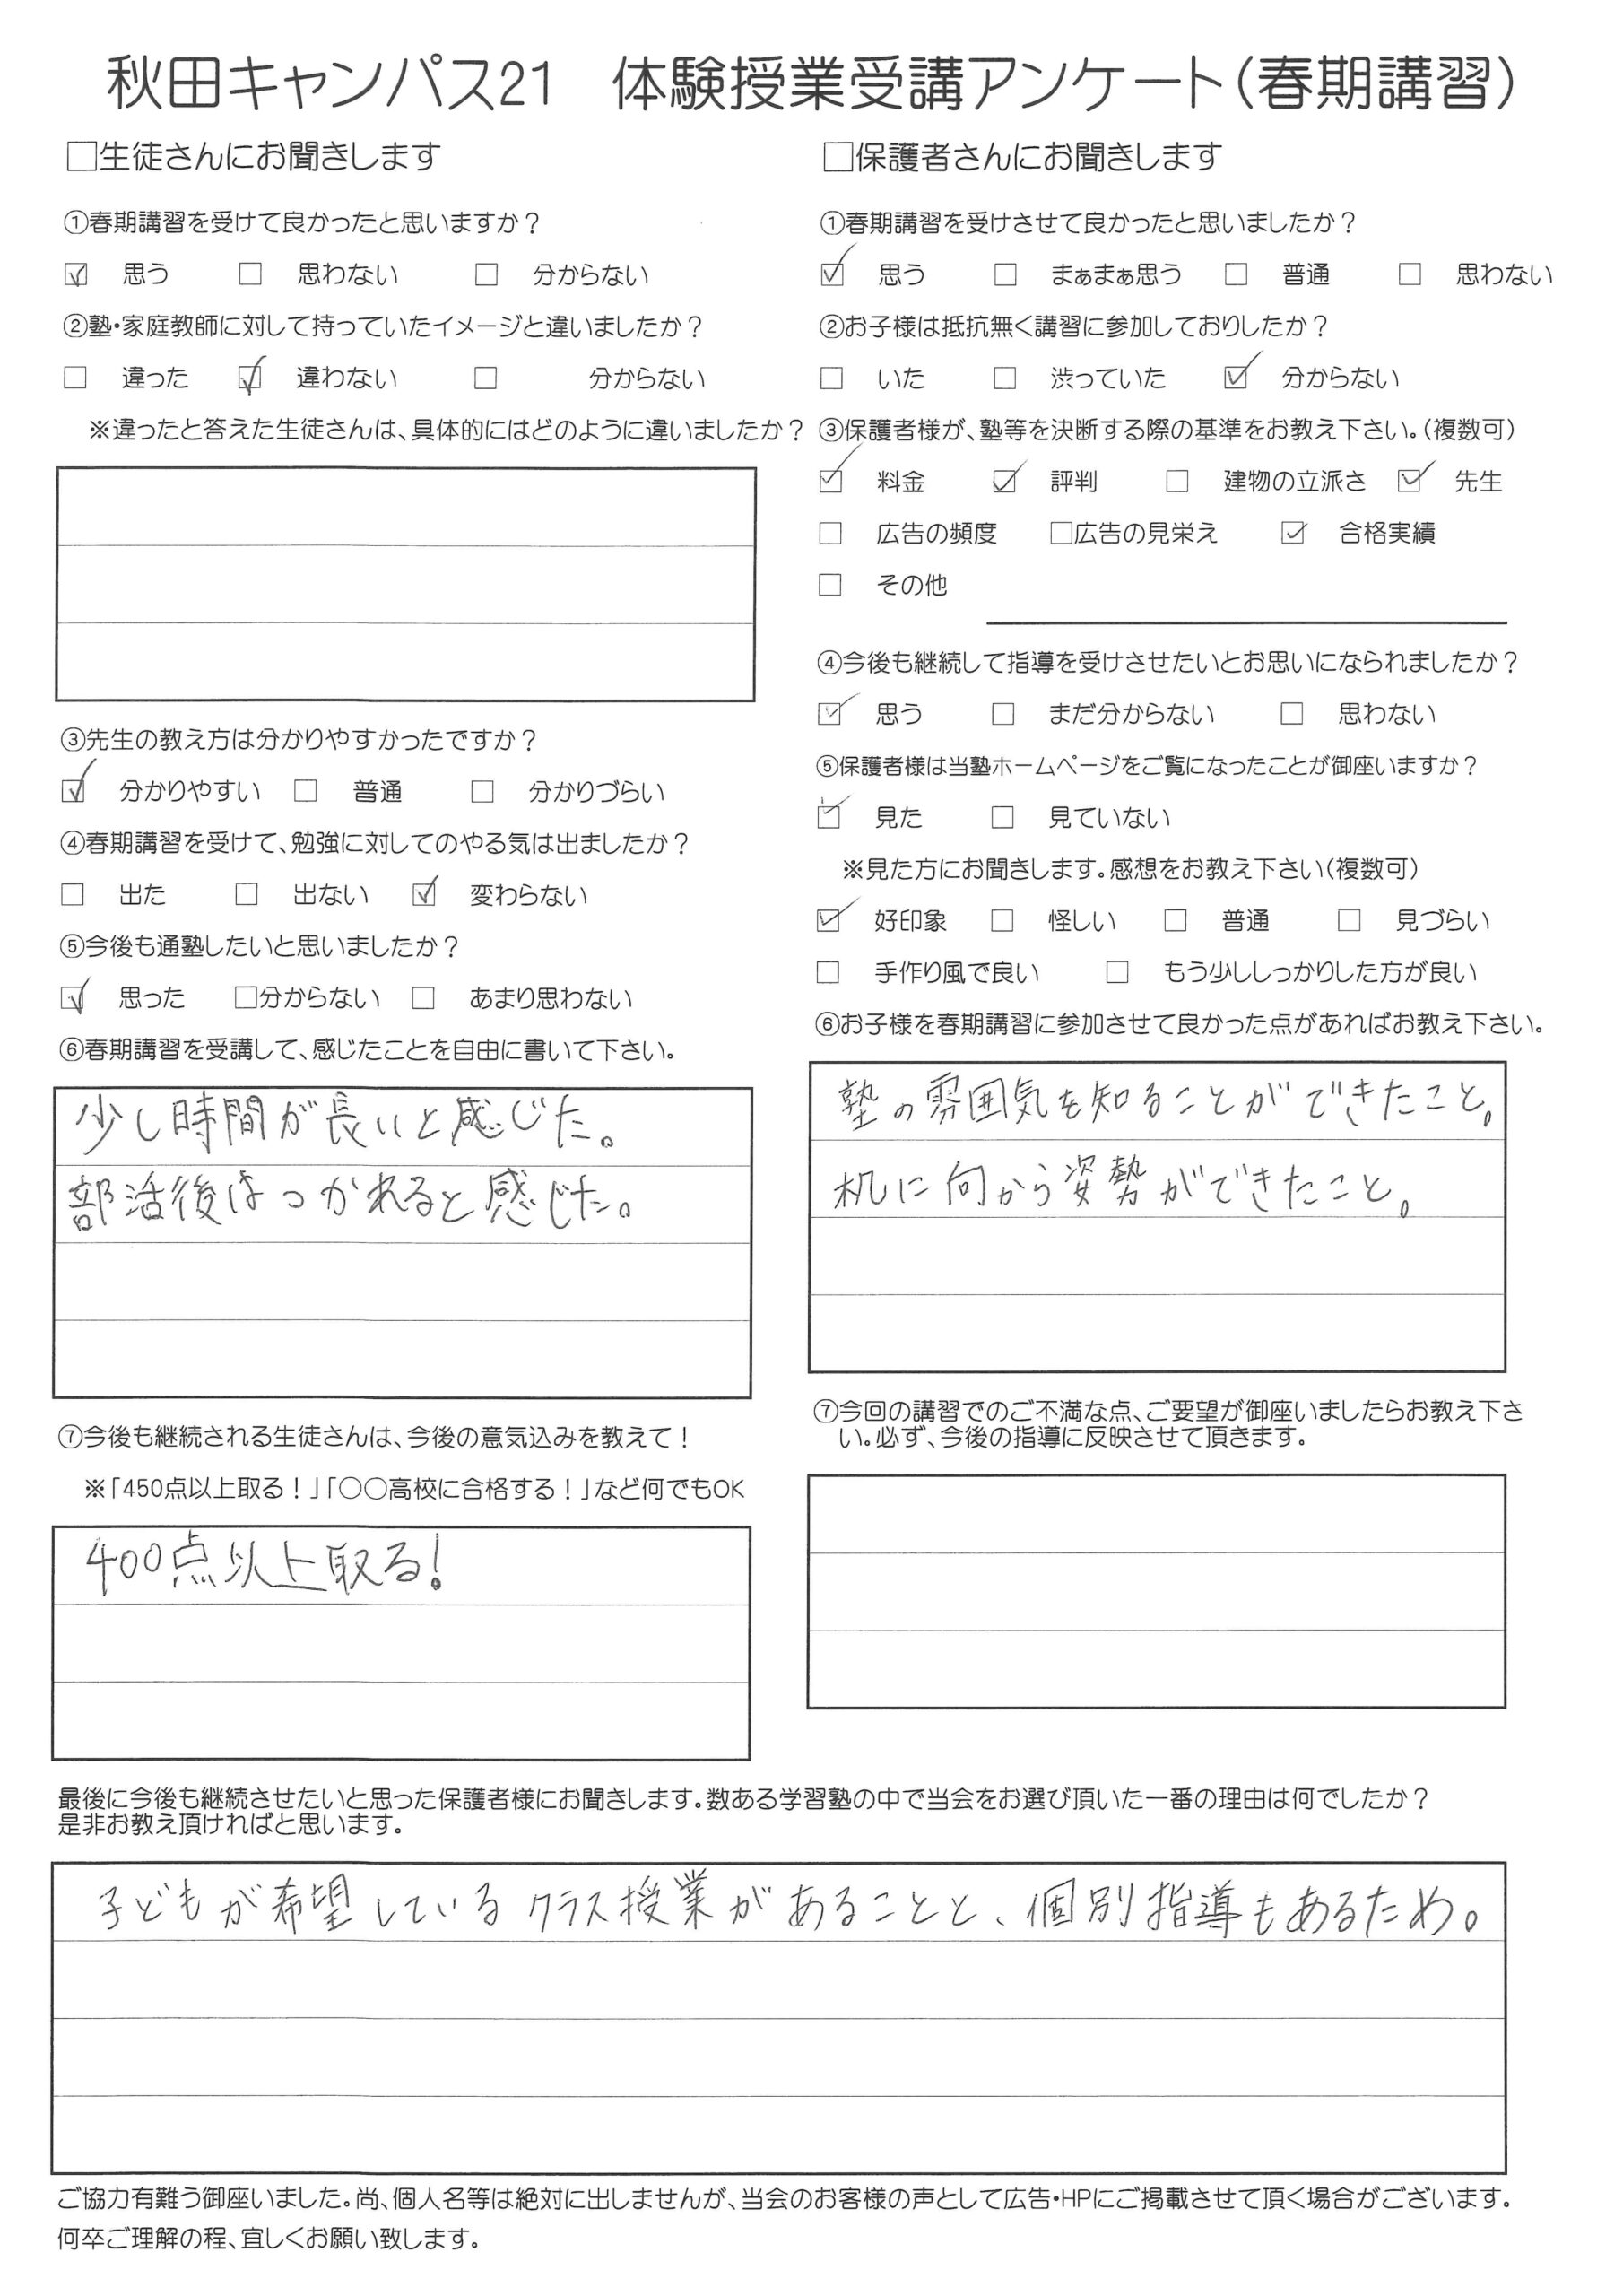 秋田キャンパス21　体験授業受講アンケート（春期講習）
□生徒さんにお聞きします
①春期講習を受けて良かったと思いますか？
☑ 思う □ 思わない □ 分からない
②塾・家庭教師に対して持っていたイメージと違いましたか？
□ 違った ☑ 違わない □ 分からない
※違ったと答えた生徒さんは、具体的にはどのように違いましたか？
③先生の教え方は分かりやすかったですか？
☑ 分かりやすい □ 普通 □ 分かりづらい
④春期講習を受けて、勉強に対してのやる気は出ましたか？
□ 出た □ 出ない ☑ 変わらない
⑤今後も通塾したいと思いましたか？
☑ 思った □分からない □ あまり思わない
⑥春期講習を受講して、感じたことを自由に書いて下さい。
少し時間が長いと感じた。
部活後はつかれると感じた。
⑦今後も継続される生徒さんは、今後の意気込みを教えて！
※「450点以上取る！」「○○高校に合格する！」など何でもOK
400点以上取る!
□保護者さんにお聞きします
①春期講習を受けさせて良かったと思いましたか？
☑ 思う □ まぁまぁ思う □ 普通 □ 思わない
②お子様は抵抗無く講習に参加しておりしたか？
□ いた □ 渋っていた ☑ 分からない
③保護者様が、塾等を決断する際の基準をお教え下さい。（複数可）
☑ 料金 ☑ 評判 □ 建物の立派さ ☑ 先生
□ 広告の頻度 □広告の見栄え ☑ 合格実績
□ その他
④今後も継続して指導を受けさせたいとお思いになられましたか？
☑ 思う □ まだ分からない □ 思わない
⑤保護者様は当塾ホームページをご覧になったことが御座いますか？
☑ 見た □ 見ていない
※見た方にお聞きします。感想をお教え下さい（複数可）
☑ 好印象 □ 怪しい □ 普通 □ 見づらい
□ 手作り風で良い □ もう少ししっかりした方が良い
⑥お子様を春期講習に参加させて良かった点があればお教え下さい。
塾の雰囲気を知ることができたこと。
机に向かう姿勢ができたこと。
⑦今回の講習でのご不満な点、ご要望が御座いましたらお教え下さ
い。必ず、今後の指導に反映させて頂きます。
最後に今後も継続させたいと思った保護者様にお聞きします。数ある学習塾の中で当会をお選び頂いた一番の理由は何でしたか？
是非お教え頂ければと思います。
子どもが希望しているクラス授業があることと、個別指導もあるため。
ご協力有難う御座いました。尚、個人名等は絶対に出しませんが、当会のお客様の声として広告・HPにご掲載させて頂く場合がございます。
何卒ご理解の程、宜しくお願い致します。